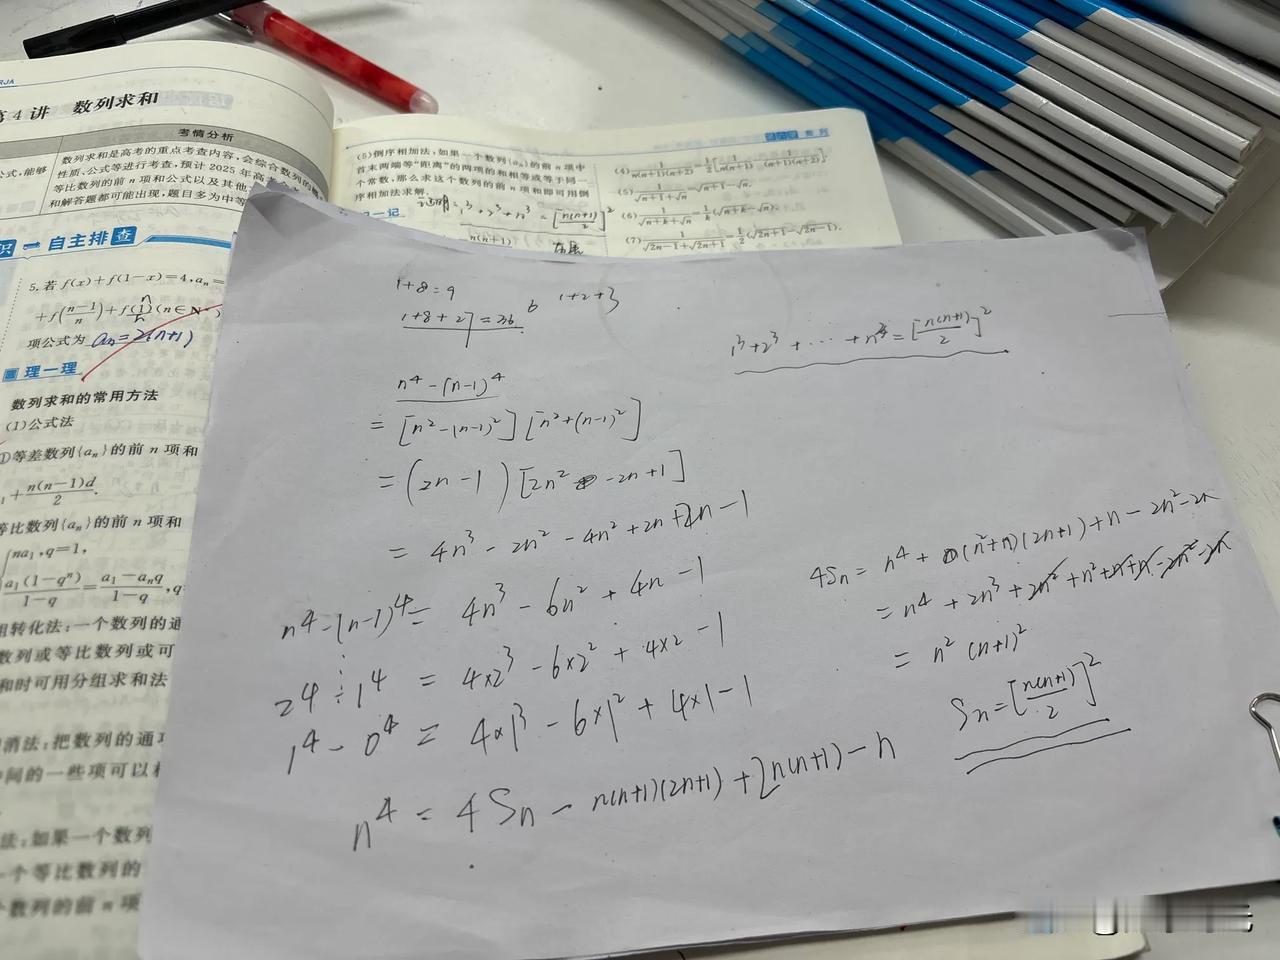 RJA
第4讲 数列求和
考情分析
公式,能够
数列求和是高考的重点考查内容,会综合数列的
性质、公式等进行考查,预计2025年高考
等比数列的前n项和公式以及其他
和解答题都可能出现,题目多为中等
识 自主排查
5.若f(x)+f(1-x)=4,aₙ=
+f((n-1)/n)+f(n/n)(n∈N*)
项公式为 aₙ=2(n+1)
理一理
数列求和的常用方法
(1)公式法
①等差数列{aₙ}的前n项和
+n(n-1)d/2.
等比数列{aₙ}的前n项和
na₁,q=1,
a₁(1-qⁿ)/(1-q)=(a₁-aₙq)/(1-q),q
组转化法:一个数列的通
数列或等比数列或可
和时可用分组求和法
消法:把数列的通项
中间的一些项可以相
法:如果一个数列
一个等比数列的
个数列的前n项
(5)倒序相加法:如果一个数列{aₙ}的前n项中
首末两端等“距离”的两项的和相等或等于同一
个常数,那么求这个数列的前n项和即可用倒
序相加法求解.
证明:1³+2³+n³=[n(n+1)/2]²
记一记
n(n+1)
(4)1/(n(n+1)(n+2))=1/2[1/(n(n+1))-1/((n+1)(n+2))].
(5)1/(√(n+1)+√n)=√(n+1)-√n.
(6)1/(√(n+k)+√n)=1/k(√(n+k)-√n).
(7)1/(√(2n-1)+√(2n+1))=1/2(√(2n+1)-√(2n-1)).
1+8=9
1+8+27=36 6 1+2+3
1³+2³+⋯+n³=[n(n+1)/2]²
n⁴-(n-1)⁴
=[n²-(n-1)²][n²+(n-1)²]
=(2n-1)[2n²-2n+1]
=4n³-2n²-4n²+2n+2n-1
n⁴-(n-1)⁴=4n³-6n²+4n-1
⋮
2⁴-1⁴=4×2³-6×2²+4×2-1
1⁴-0⁴=4×1³-6×1²+4×1-1
n⁴=4Sn-n(n+1)(2n+1)+2n(n+1)-n
4Sn=n⁴+(n²+n)(2n+1)+n-2n²-2n
=n⁴+2n³+2n²+n²+n+n-2n²-2n
=n²(n+1)²
Sn=[n(n+1)/2]²